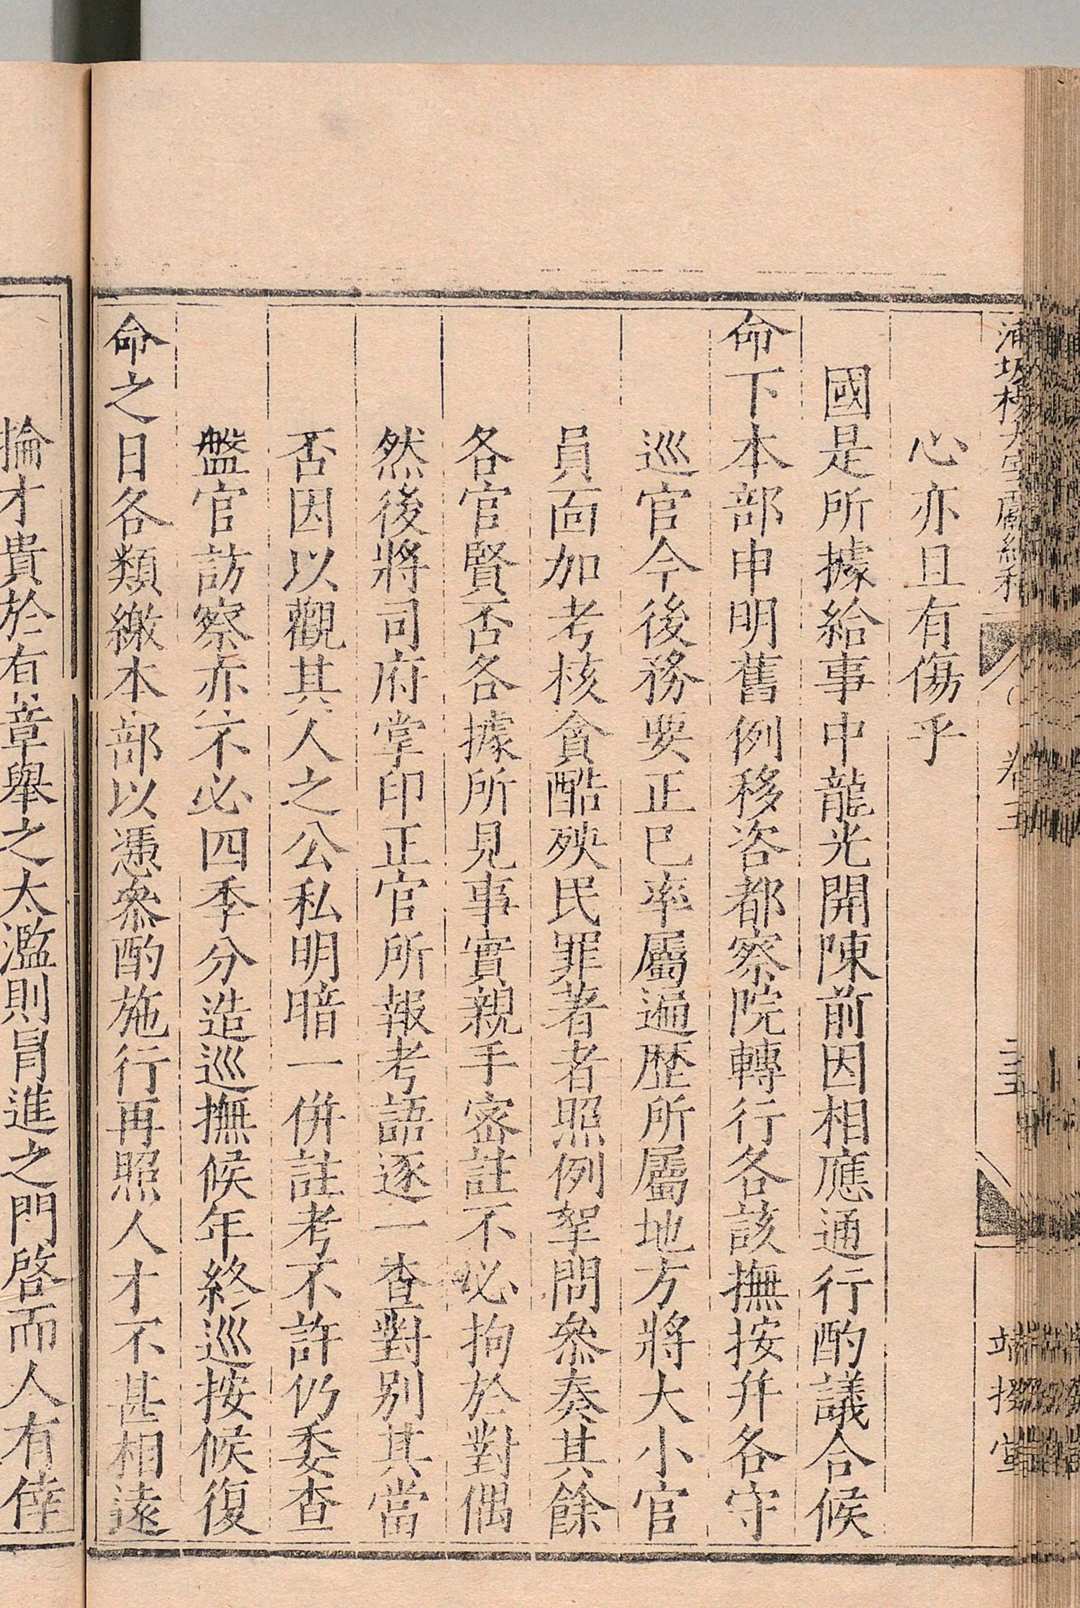 心亦且有傷乎
國是所據給事中龍光開陳前因相應通行酌議合候
命下本部申明舊例移咨都察院轉行各該撫按并各守
巡官今後務要正己率屬遍歷所屬地方將大小官
員面加考核貪酷殃民罪著者照例拏問叅奏其餘
各官賢否各據所見事實親手密註不必拘於對偶
然後將司府掌印正官所報考語逐一查對別其當
否因以觀其人之公私明暗一併註考不許仍委查
盤官訪察亦不必四季分造巡撫候年終巡按候復
命之日各類繳本部以憑叅酌施行再照人才不甚相遠
掄才貴於有章舉之太濫則冐進之門啓而人有倖